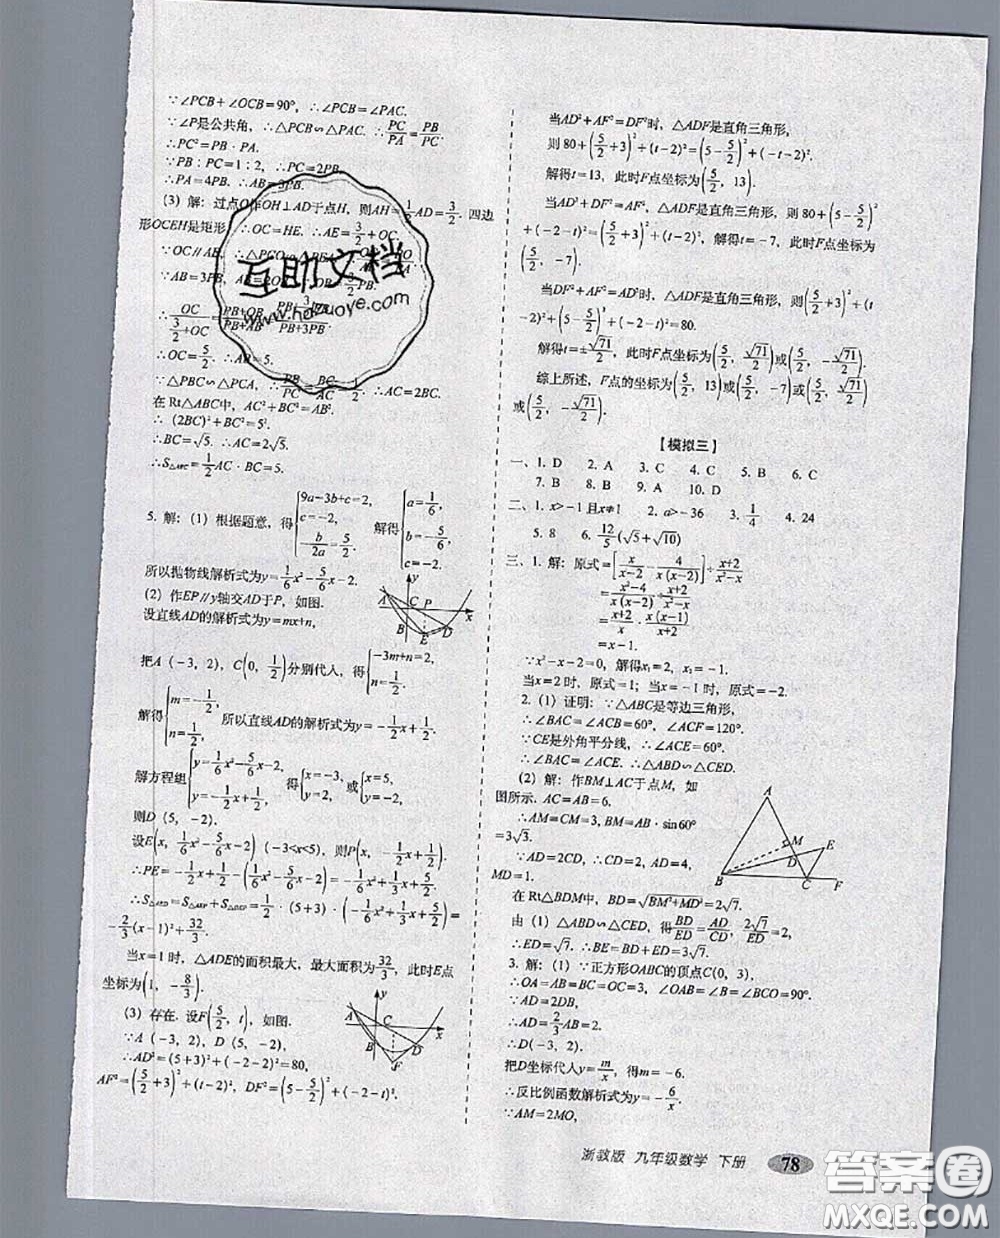 ∵∠PCB+∠OCB=90°, ∴∠PCB=∠PAC.
∵∠P是公共角, ∴△PCB∽△PAC. ∴PC/PA=PB/PC.
∴PC²=PB·PA.
∵PB∶PC=1∶2, ∴PC=2PB.
∴PA=4PB. ∴AB=3PB.
(3) 解: 过点O作OH⊥AD于点H, 则AH=1/2AD=3/2. 四边
形OCEH是矩形, ∴OC=HE. ∴AE=3/2+OC.
∵OC∥AE,
∵AB=3PB, AB=2OB,
∴OC/(3/2+OC)=
∴OC=5/2. ∴AB=5.
∵△PBC∽△PCA, ∴PB/PC=BC/AC=1/2. ∴AC=2BC.
在Rt△ABC中, AC²+BC²=AB².
∴(2BC)²+BC²=5².
∴BC=√5. ∴AC=2√5.
∴S△ABC=1/2AC·BC=5.
5. 解: (1) 根据题意, 得{9a-3b+c=2, c=-2, -b/2a=5/2. 解得{a=1/6, b=-5/6, c=-2.
所以抛物线解析式为y=1/6x²-5/6x-2.
(2) 作EP∥y轴交AD于P, 如图.
设直线AD的解析式为y=mx+n,
A C P x y B E D
把A(-3, 2), C(0, 1/2)分别代人, 得{-3m+n=2, n=1/2.
解得{m=-1/2, n=1/2, 所以直线AD的解析式为y=-1/2x+1/2.
解方程组{y=1/6x²-5/6x-2, y=-1/2x+1/2, 得{x=-3, y=2, 或{x=5, y=-2.
则D(5, -2).
设E(x, 1/6x²-5/6x-2)(-3<x<5), 则P(x, -1/2x+1/2).
∴PE=-1/2x+1/2-(1/6x²-5/6x-2)=-1/6x²+1/3x+5/2.
∴S△AED=S△AEP+S△DEP=1/2·(5+3)·(-1/6x²+1/3x+5/2)=
-2/3(x-1)²+32/3.
当x=1时, △ADE的面积最大, 最大面积为32/3, 此时E点
坐标为(1, -8/3).
(3) 存在. 设F(5/2, t), 如图.
∵A(-3, 2), D(5, -2).
∴AD²=(5+3)²+(-2-2)²=80,
AF²=(5/2+3)²+(t-2)², DF²=(5-5/2)²+(-2-t)².
A C x y D F
当AD²+AF²=DF²时, △ADF是直角三角形,
则80+(5/2+3)²+(t-2)²=(5-5/2)²+(-t-2)².
解得t=13, 此时F点坐标为(5/2, 13).
当AD²+DF²=AF²时, △ADF是直角三角形, 则80+(5-5/2)²
+(-2-t)²=(5/2+3)²+(t-2)², 解得t=-7, 此时F点坐标为
(5/2, -7).
当DF²+AF²=AD²时, △ADF是直角三角形, 则(5/2+3)²+(t
-2)²+(5-5/2)²+(-2-t)²=80.
解得t=±√71/2, 此时F点坐标为(5/2, √71/2)或(5/2, -√71/2).
综上所述, F点的坐标为(5/2, 13)或(5/2, -7)或(5/2, √71/2)
或(5/2, -√71/2).
【模拟三】
一、1. D 2. A 3. C 4. C 5. B 6. C
7. B 8. B 9. A 10. D
二、1. x>-1且x≠1 2. a>-36 3. 1/4 4. 24
5. 8 6. 12/5(√5+√10)
三、1. 解: 原式=[x/(x-2)-4/x(x-2)]÷(x+2)/(x²-x)
=(x²-4)/x(x-2)÷(x+2)/(x²-x)
=(x+2)/x·x(x-1)/(x+2)
=x-1.
∵x²-x-2=0, 解得x₁=2, x₁=-1.
当x=2时, 原式=1; 当x=-1时, 原式=-2.
2. (1) 证明: ∵△ABC是等边三角形,
∴∠BAC=∠ACB=60°, ∠ACF=120°.
∵CE是外角平分线, ∴∠ACE=60°.
∴∠BAC=∠ACE. ∴△ABD∽△CED.
(2) 解: 作BM⊥AC于点M, 如
图所示. AC=AB=6.
∴AM=CM=3, BM=AB·sin60°
=3√3.
∵AD=2CD, ∴CD=2, AD=4,
MD=1.
A M E D B C F
在Rt△BDM中, BD=√(BM²+MD²)=2√7.
由(1)△ABD∽△CED, 得BD/ED=AD/CD, 2√7/ED=2,
∴ED=√7. ∴BE=BD+ED=3√7.
3. 解: (1) ∵正方形OABC的顶点C(0, 3).
∴OA=AB=BC=OC=3, ∠OAB=∠B=∠BCO=90°.
∵AD=2DB,
∴AD=2/3AB=2.
∴D(-3, 2).
把D坐标代人y=m/x, 得m=-6.
∴反比例函数解析式为y=-6/x.
∵AM=2MO,
互助文档
www.hdzuoye.com
浙教版 九年级数学 下册 78
答案圈
MXQE.COM